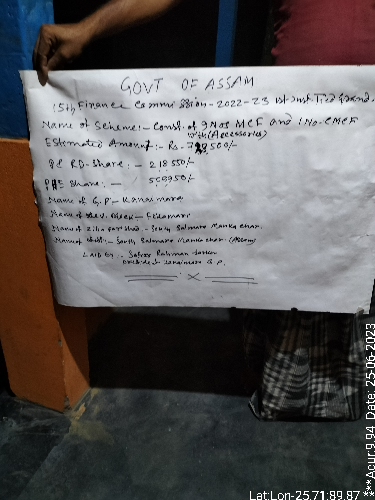 GOVT OF ASSAM
15th Finance Commission-2022-23 1st inst Tied Grand.
Name of Scheme:- Const. of 9 Nos MCF and 1 No. CMCF
with (Accessories)
Estimated Amount:- Rs. 500/-
P& RD-Share:- 218550/-
PHE Share:-
Name of G.P:- Kanaimara
Name of Block:- Fekamari
Name of Zilla parishad:- South Salmara Mankachar.
Name of Distt:- South Salmara Mankachar (Assam)
LAID BY:- Rahman
Kanaimara G.P.
Lat:Lon-2571:89.87***Acur:9.94 Date: 25-06-2023